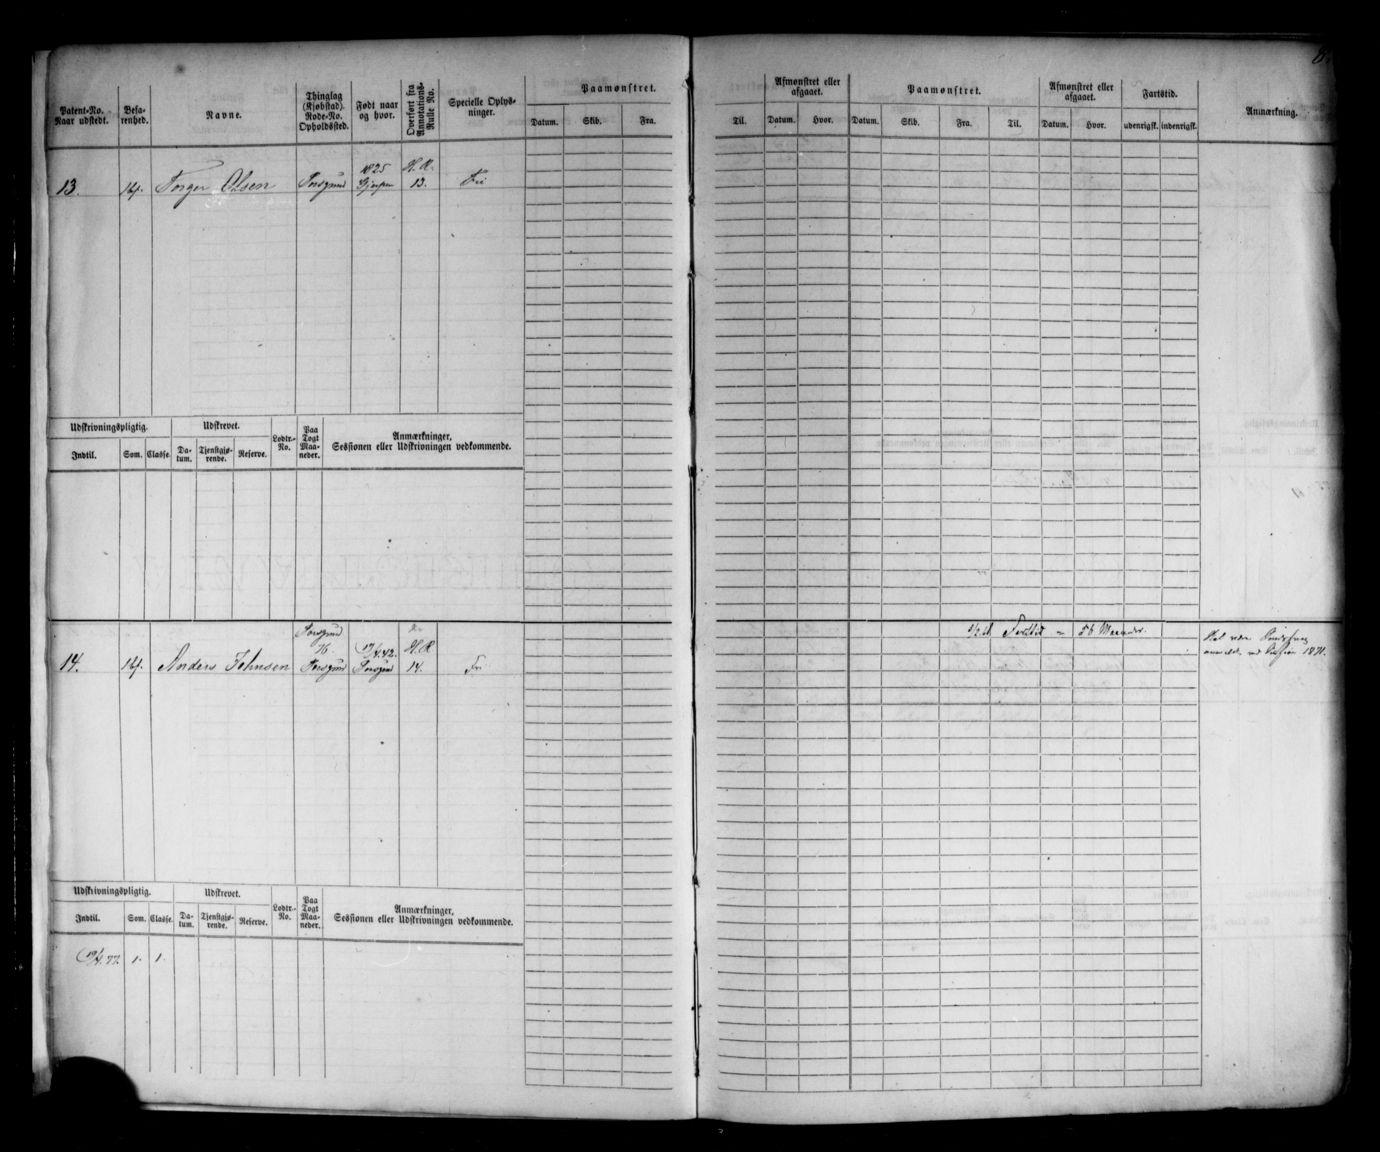 Patent-No. Naar udstedt. Befarenhed. Navne. Thinglag (Kjøbstad). Rode-No. Opholdssted. Født naar og hvor. Overført fra Annotations-Rulle No. Specielle Oplysninger. Paamønstret. Datum. Skib. Fra.
Til. Afmønstret eller afgaaet. Datum. Hvor. Paamønstret. Datum. Skib. Fra. Til. Afmønstret eller afgaaet. Datum. Hvor. Fartstid. udenrigsk. indenrigsk. Anmærkning.
1825 H. R.
13. Torger Olsen Porsgrund Gjerpen 13. Fri
Udskrivningspligtig. Udskrevet. Lodtr.-No. Paa Togt Maaneder. Anmærkninger, Sessionen eller Udskrivningen vedkommende.
Indtil. Som. Classe. Datum. Tjenstgjørende. Reserve.
Porsgrund
H. R.
14. Anders Johnsen Porsgrund Porsgrund 14. Fri
1871.
Udskrivningspligtig. Udskrevet. Lodtr.-No. Paa Togt Maaneder. Anmærkninger, Sessionen eller Udskrivningen vedkommende.
Indtil. Som. Classe. Datum. Tjenstgjørende. Reserve.
1. 1.